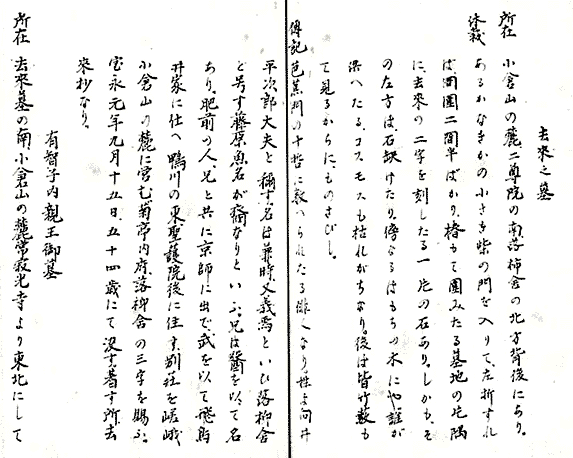 去來之墓
所在 小倉山の麓二尊院の南落柿舎の北方背後にあり。
体裁 あるかなきかの小さき柴の門を入りて、左折すれ
ば、周圍二間半ばかり、椿もて圍みたる墓地の北隅
に、去来の二字を刻したる一片の石あり。しかも、そ
の左方は、石缺けたり。傍なるはもちの木にや、誰が
栽へたる、コスモスも枯れがちなり。後は皆竹藪も
て見るからに、ものさびし。
傳記 芭蕉門の十哲に数へられたる俳人なり。姓は向井
平次郎大夫と稱す、名は兼時、又義焉といひ落柿舎
と号す藤原魚名が裔なりといふ。兄は醫を以て名
あり。肥前の人、兄と共に京師に出で、武を以て飛鳥
井家に仕へ鴨川の東聖護院後に住す、別社を嵯峨
小倉山の麓に営む菊亭内府、落柿舎の三字を賜ふ。
宝永元年九月十五日、五十四歳にて没す著す所、去
来抄なり。
有智子内親王御墓
所在 去來墓の南、小倉山の麓常寂光寺より東北にして